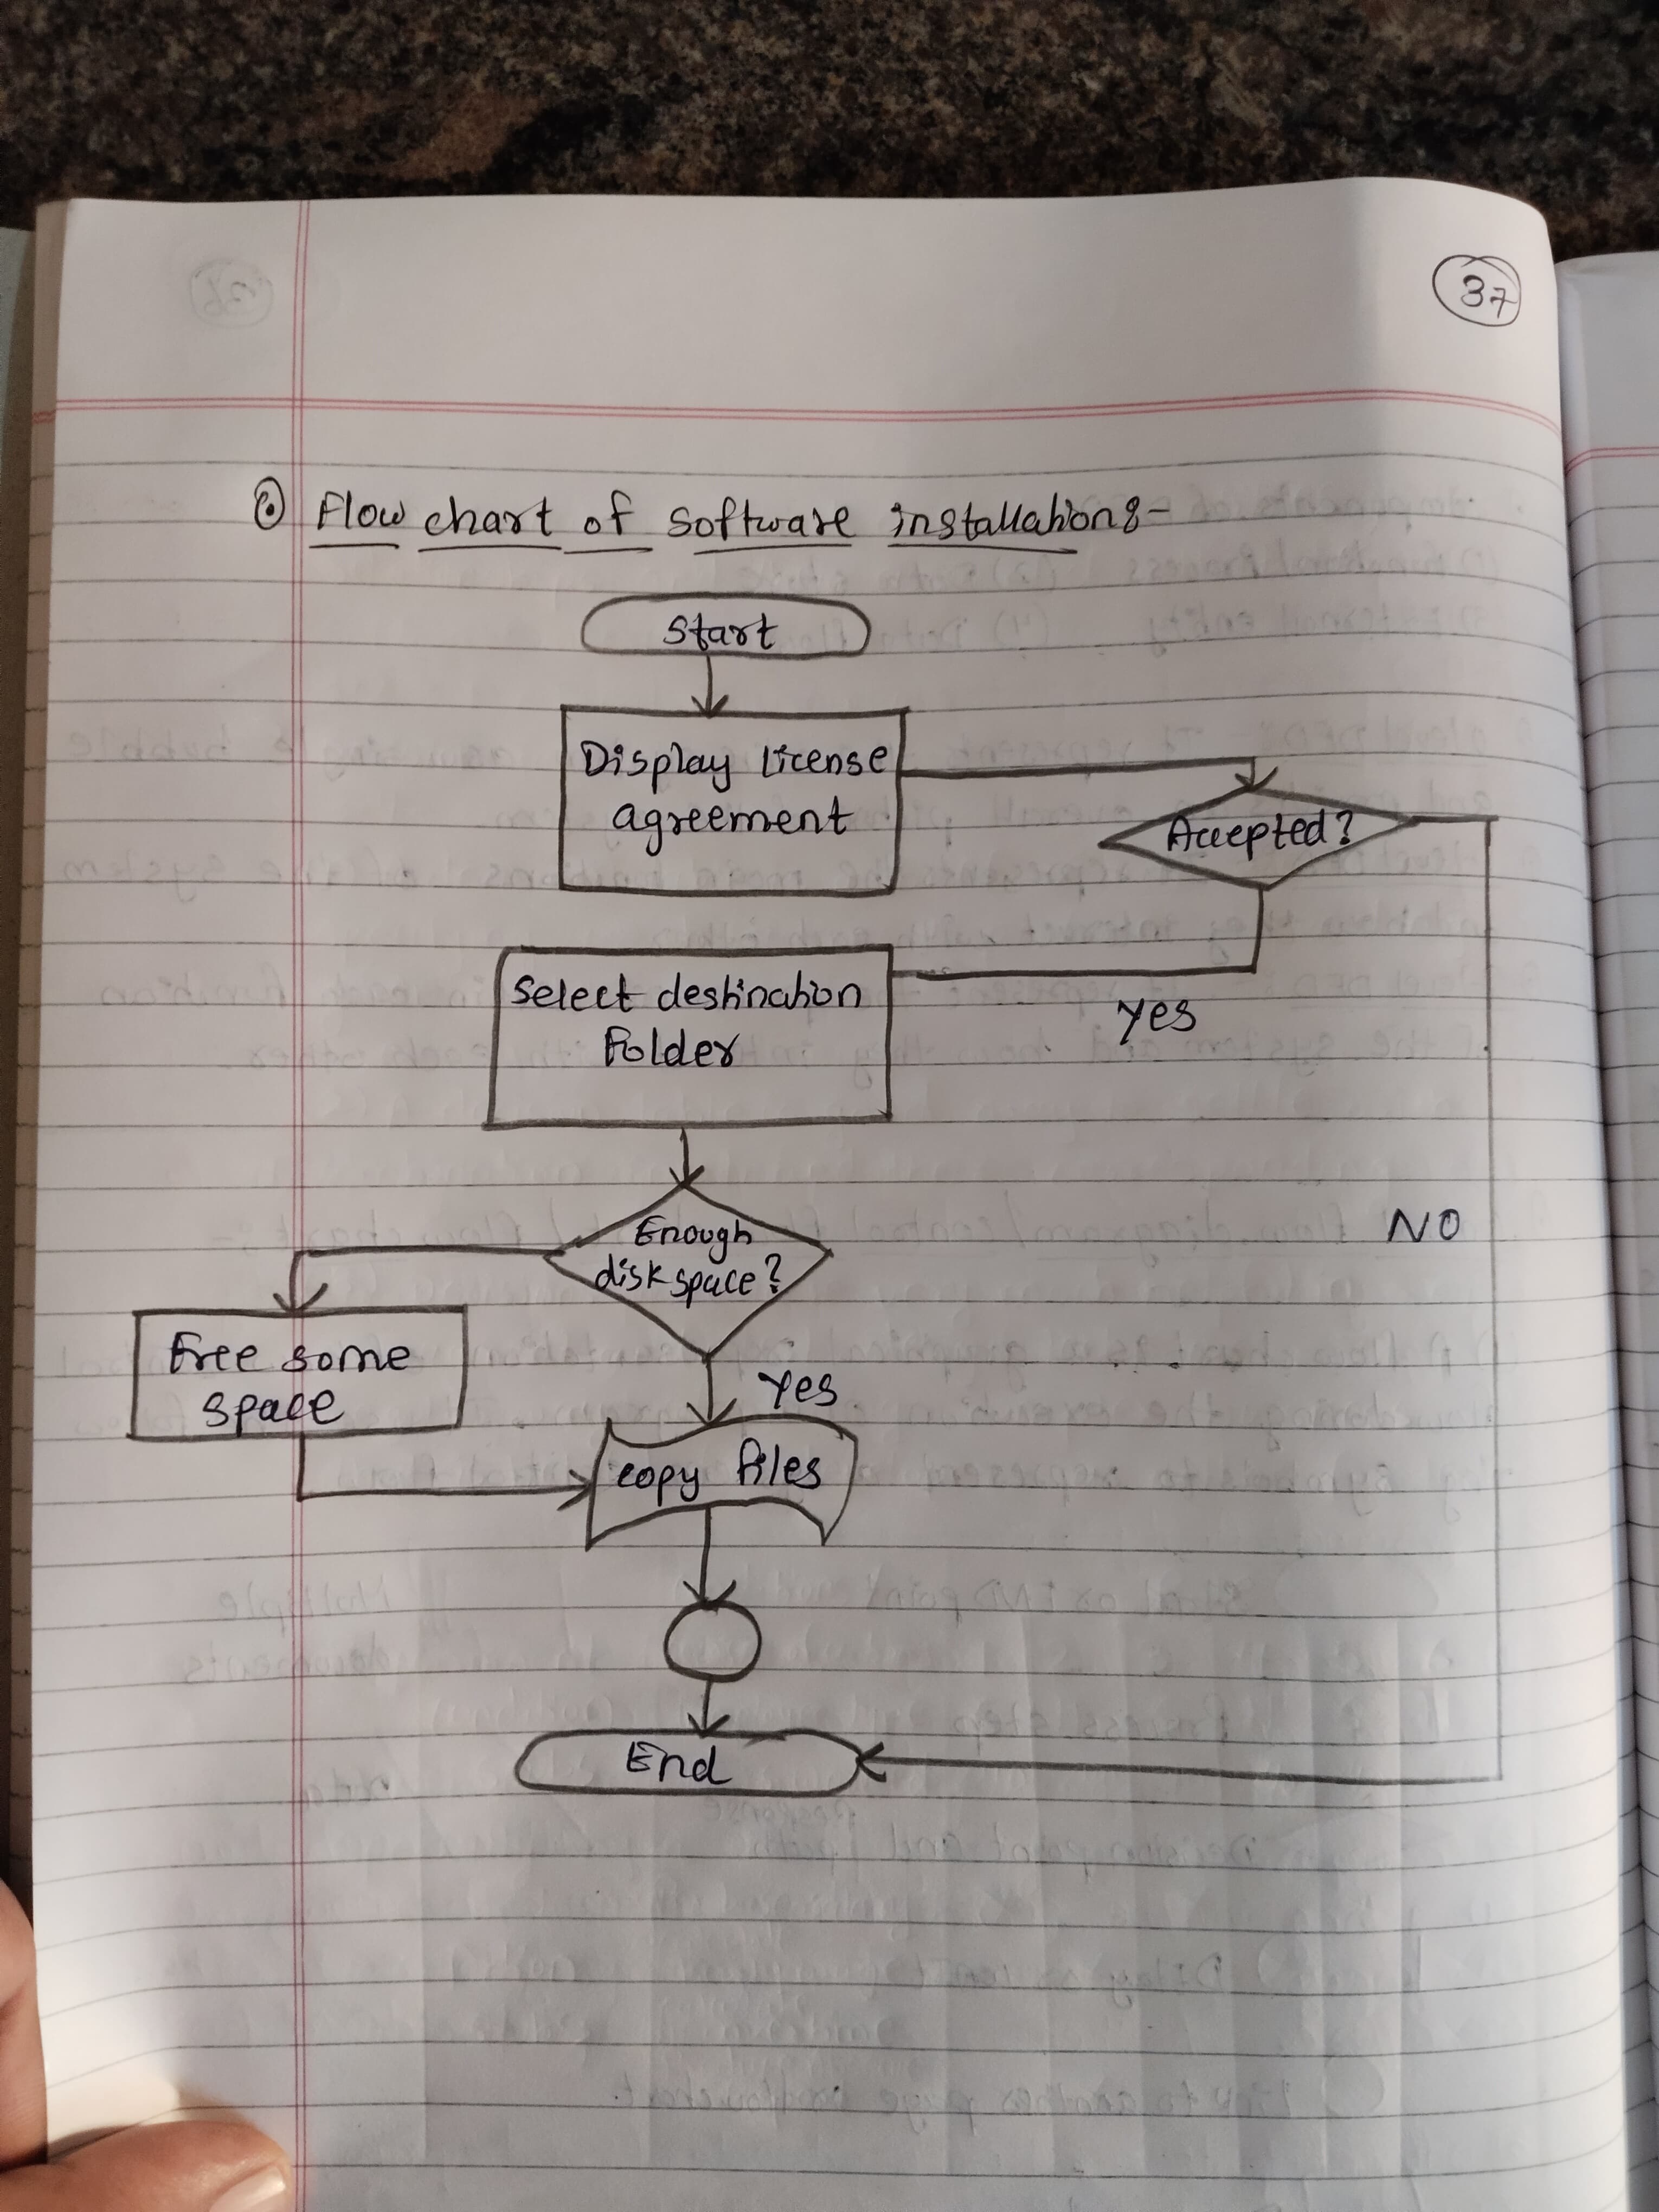 37
Flow chart of software installation:-
Start
Display license
agreement
Accepted?
Select destination
Folder
yes
Enough
disk space?
NO
Free some
space
Yes
copy files
End